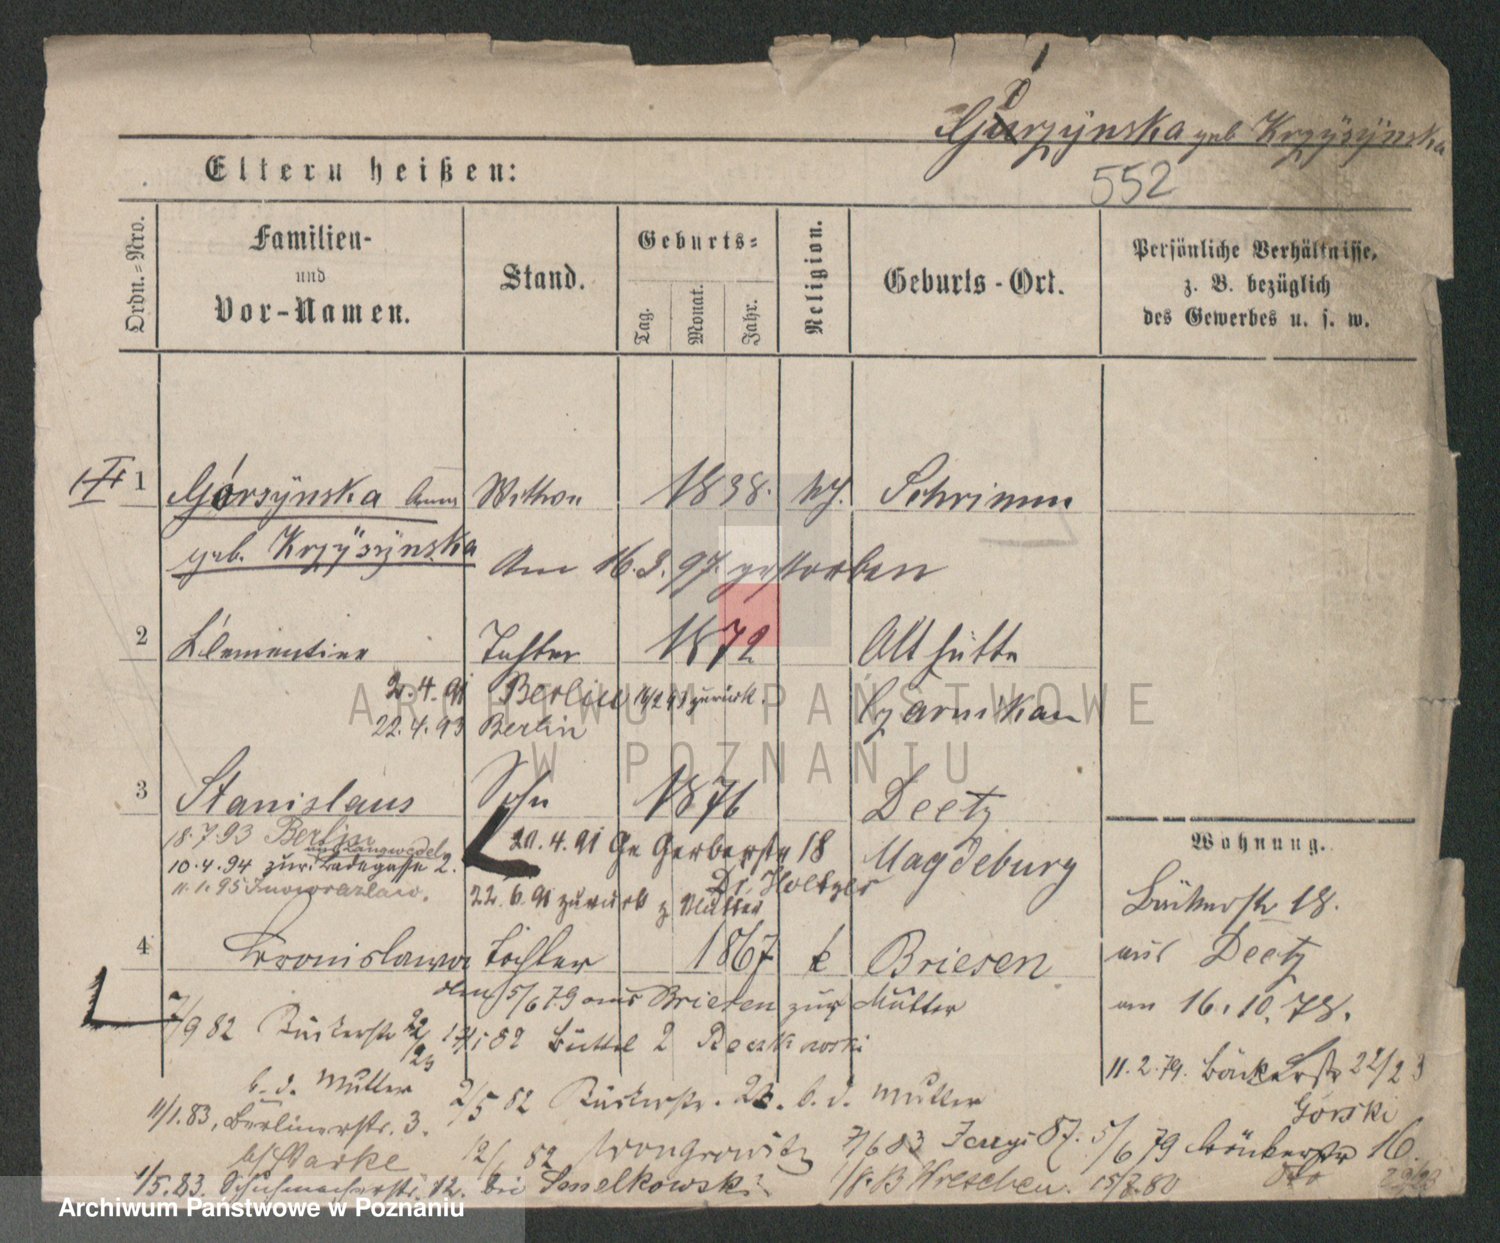 Gorzÿnska geb Krzÿsÿnska
552
Eltern heißen:
Ordn.=Nro.
Familien-
und
Vor-Namen.
Stand.
Geburts=
Tag.
Monat.
Jahr.
Religion.
Geburts-Ort.
Persönliche Verhältnisse,
z. B. bezüglich
des Gewerbes u. s. w.
1 Górsÿnska Anna Wittwe 1838. kt. Schrimm
geb. Krzÿsÿnska Am 16.3.97 gestorben
2 Clementine Tochter 1872 Althütte
21.4.91 Berlin zurück. Czarnikau
22.4.93 Berlin
3 Stanislaus Sohn 1876 Deetz
18.7.93 Berlin 20.4.91 Gr Gerberstr 18 Magdeburg
10.4.94 zur. Ladegasse 2.
11.1.95 Inowrazlaw. 22.6.91 zurück z Mutter
Wohnung.
Bäckerstr 18.
aus Deetz
am 16.10.78.
4 Bronislawa Tochter 1867 k Briesen
5/6 79 aus Briesen zur Mutter
7/9 82 22/23 Büttel 2
b. d. Mutter
11.2.79. Bäckerstr 22/23
Górski
2/5 82 23. b. d. Mutter
11/1.83, Berlinerstr. 3.
12/6 82 Wongrowitz 7/6 83 5/6 79 Bäckerstr 16.
1/5.83. Schuhmacherstr. 12. bei Smelkowski Wreschen. 15/8.80
ARCHIWUM PAŃSTWOWE
W POZNANIU
Archiwum Państwowe w Poznaniu